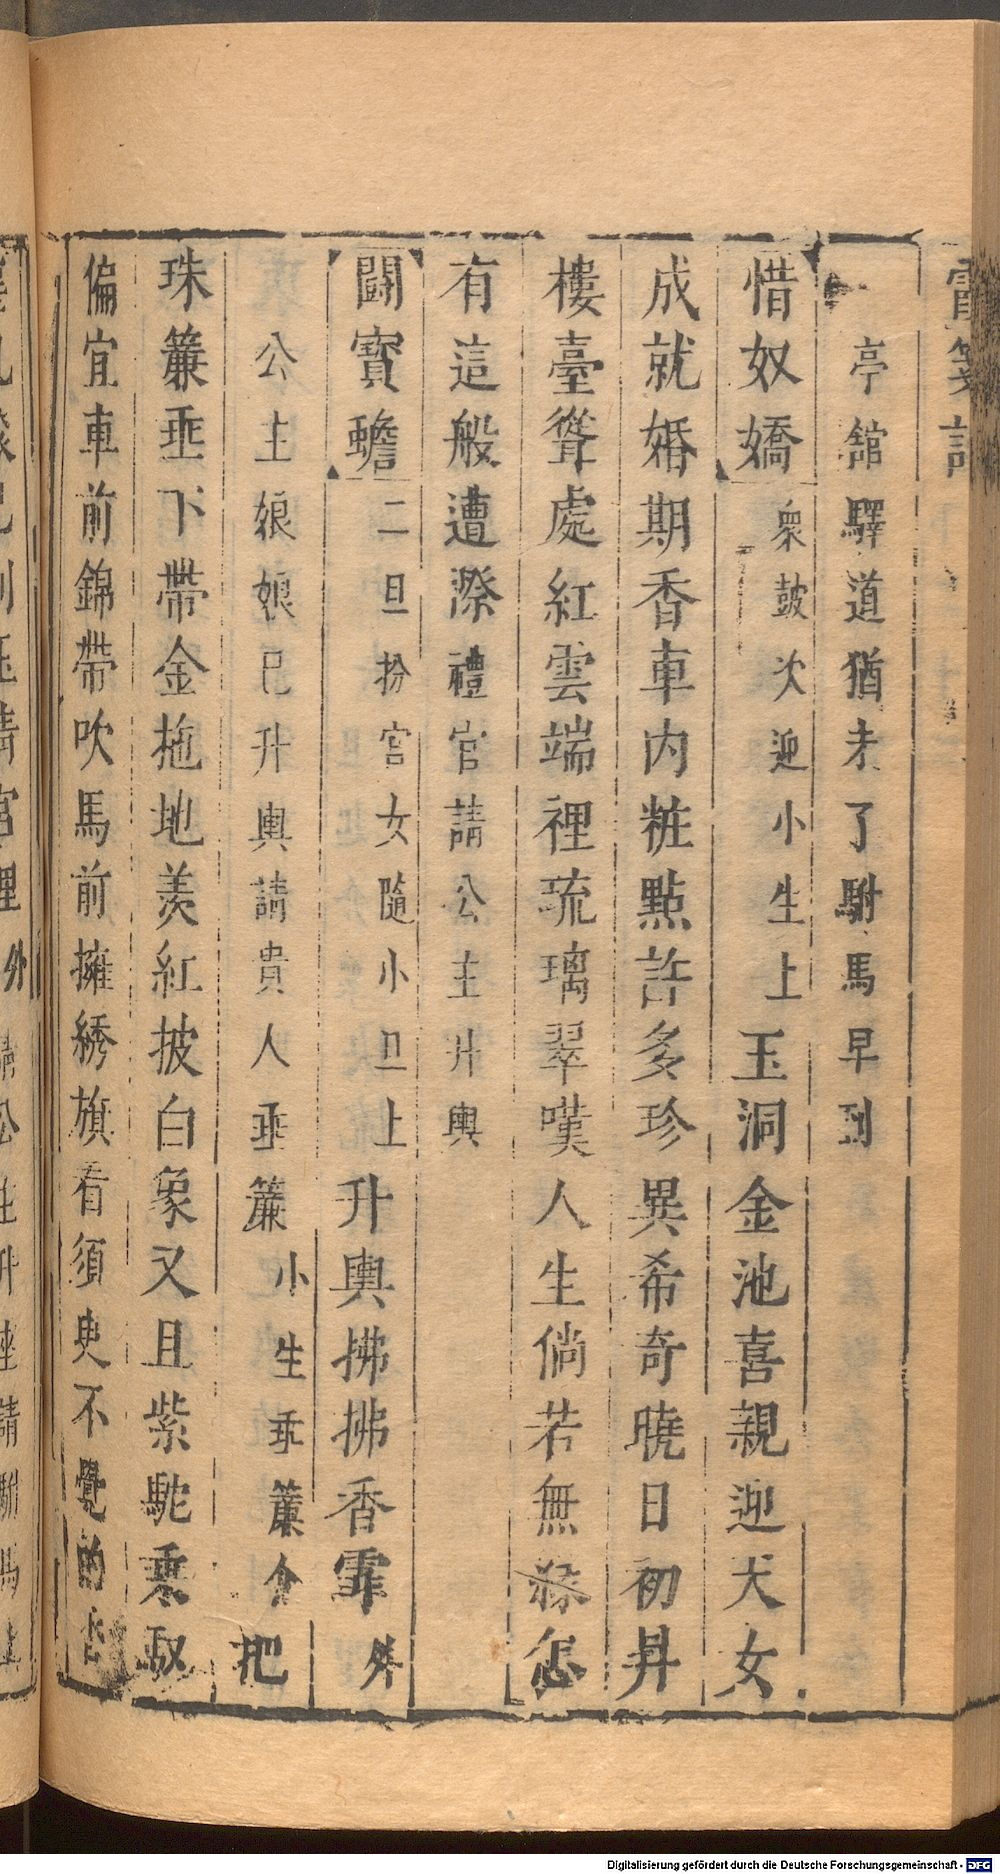 霞箋記
亭舘驛道猶未了駙馬早到
惜奴嬌 衆鼓次迎小生上 玉洞金池喜親迎天女
成就婚期香車内粧點許多珍異希奇曉日初昇
樓臺聳處紅雲端裡琉璃翠嘆人生倘若無緣怎
有這般遭際禮官請公主升輿
鬪寶蟾 二旦扮宮女隨小旦上 升輿拂拂香霏 外
公主娘娘已升輿請貴人垂簾 小生垂簾介 把
珠簾垂下帶金拖地羙紅披白象又且紫駝乘馭
偏宜車前錦帶吹馬前擁綉旗看須臾不覺的
宮裡 外 請公主升座請駙馬上